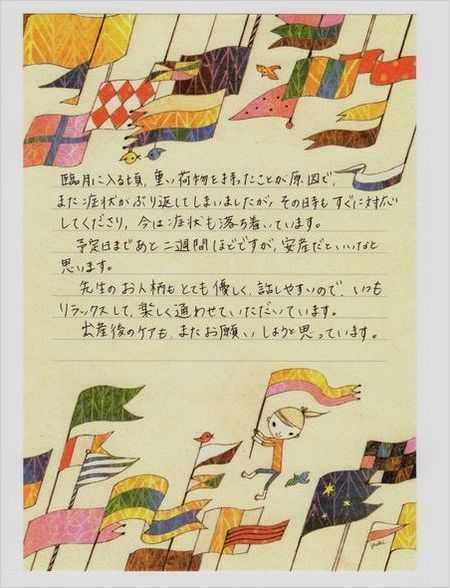 臨月に入る頃、重い荷物を持ったことが原因で、
また症状がぶり返してしまいましたが、その日時もすぐに対応
してくださり、今は症状も落ち着いています。
予定日まであと二週間ほどですが、安産だといいなと
思います。
先生のお人柄もとても優しく、話しやすいので、いつも
リラックスして、楽しく通わせていただいています。
出産後のケアも、またお願いしようと思っています。